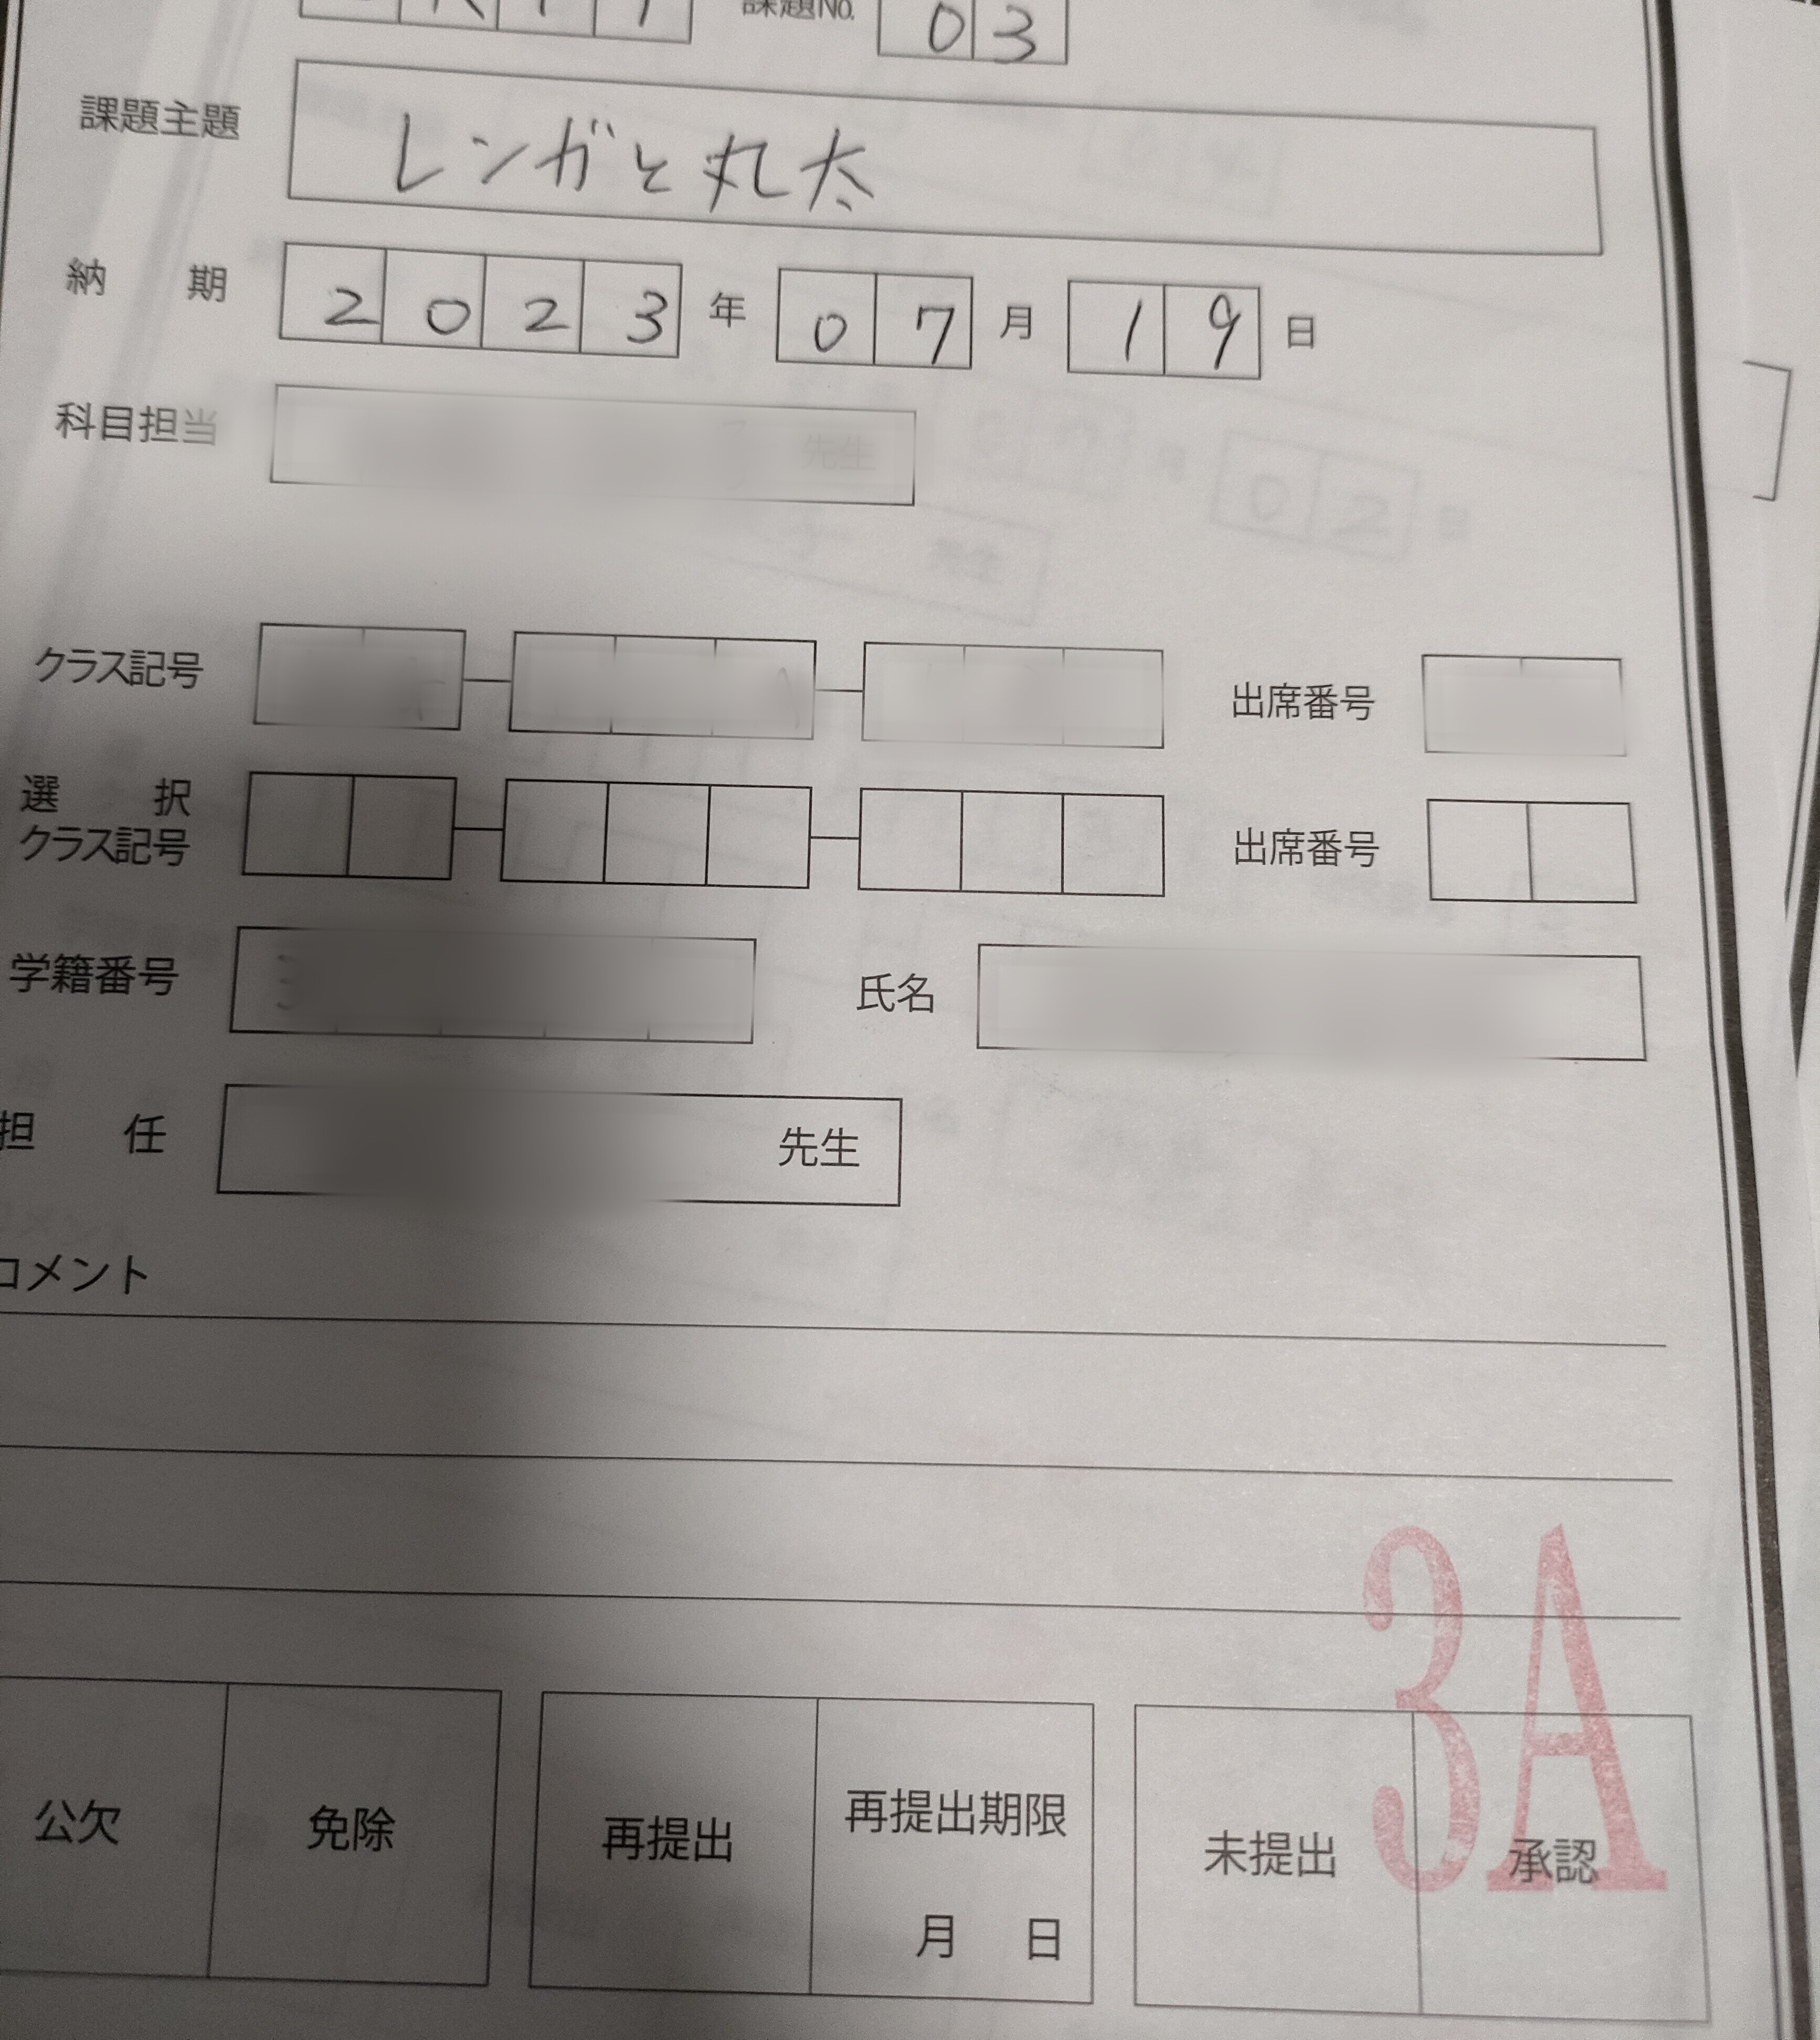 課題No. 03
課題主題 レンガと丸太
納期 2023年07月19日
科目担当 先生
クラス記号 出席番号
選択
クラス記号 出席番号
学籍番号 氏名
担任 先生
コメント
3A
公欠 免除 再提出 再提出期限 未提出 承認
月 日